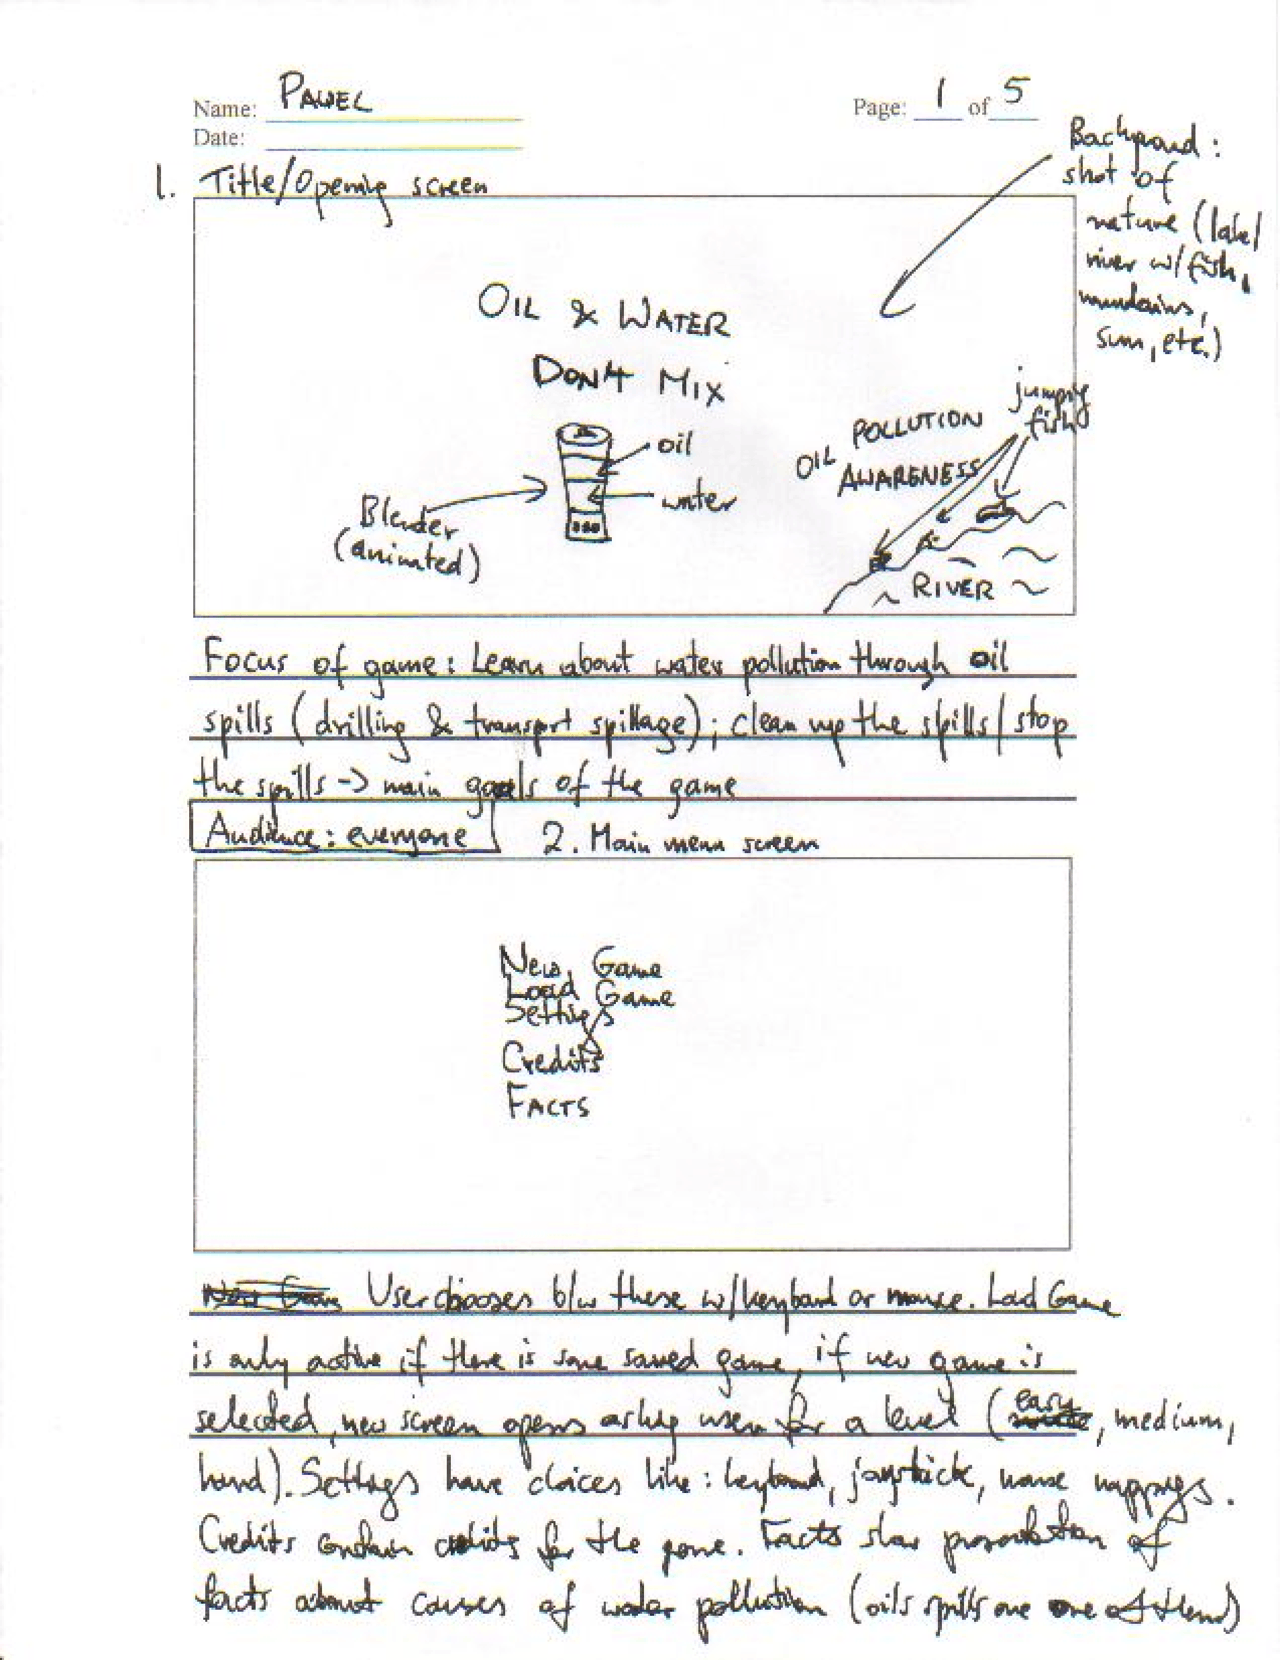 Name: PAWEL
Page: 1 of 5
Date:
Background:
shot of
nature (lake/
river w/fish,
mountains,
sun, etc.)
1. Title/Opening screen
OIL & WATER
DON'T MIX
oil
water
Blender
(animated)
OIL POLLUTION
AWARENESS
jumping
fish
RIVER
Focus of game: Learn about water pollution through oil
spills (drilling & transport spillage); clean up the spills/stop
the spills -> main goals of the game
Audience: everyone
2. Main menu screen
New Game
Load Game
Settings
Credits
FACTS
User chooses b/w these w/keyboard or mouse. Load Game
is only active if there is some saved game, if new game is
selected, new screen opens asking user for a level (easy, medium,
hard). Settings have choices like: keyboard, joystick, mouse mappings.
Credits contain credits for the game. Facts show presentation of
facts about causes of water pollution (oils spills are one of them)